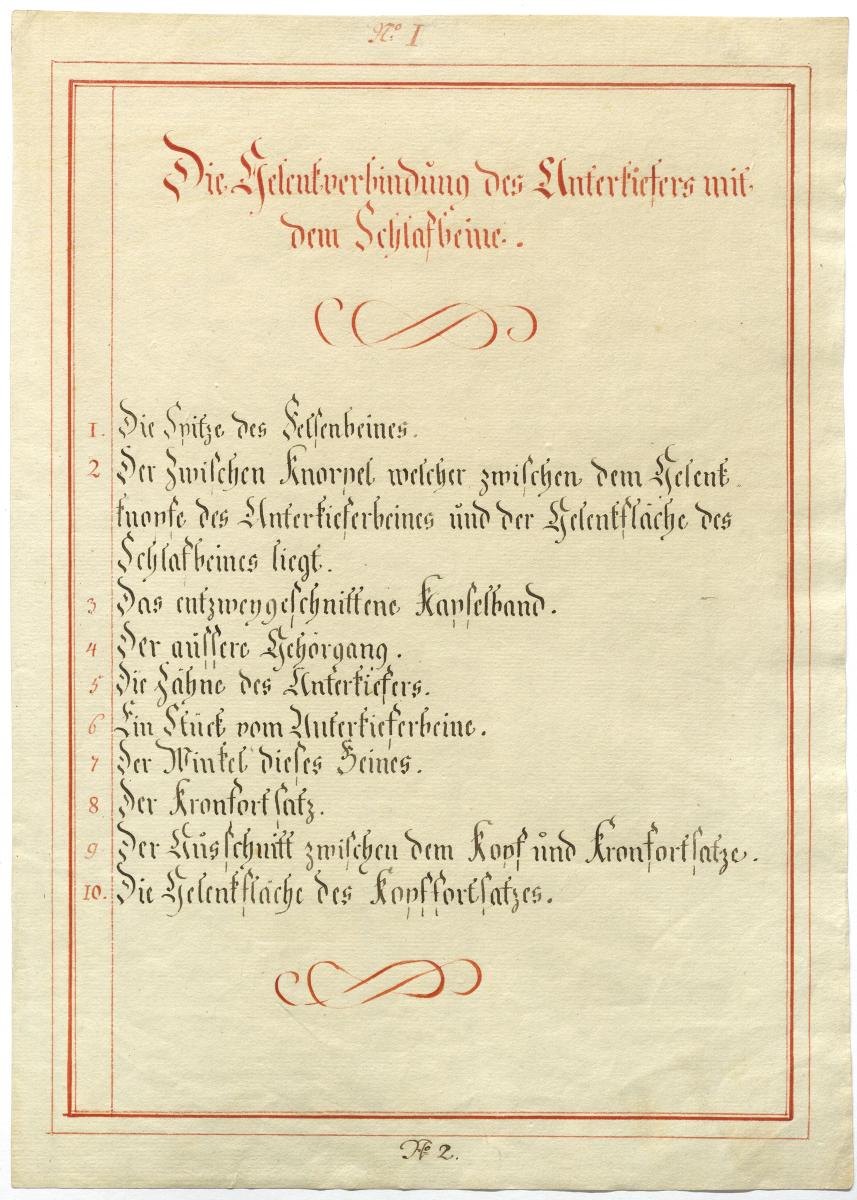 No I
Die Gelenkverbindung des Unterkiefers mit
dem Schlafbeine.
1. Die Spitze des Felsenbeines.
2 Der Zwischen Knorpel welcher zwischen dem Gelenk
knopfe des Unterkieferbeines und der Gelenkfläche des
Schlafbeines liegt.
3 Das entzweygeschnittene Kapselband.
4 Der äussere Gehörgang.
5 Die Zähne des Unterkiefers.
6 Ein Stück vom Unterkieferbeine.
7 Der Winkel dieses Beines.
8 Der Kronfortsatz.
9 Der Ausschnitt zwischen dem Kopf und Kronfortsatze.
10. Die Gelenkfläche des Kopffortsatzes.
No 2.